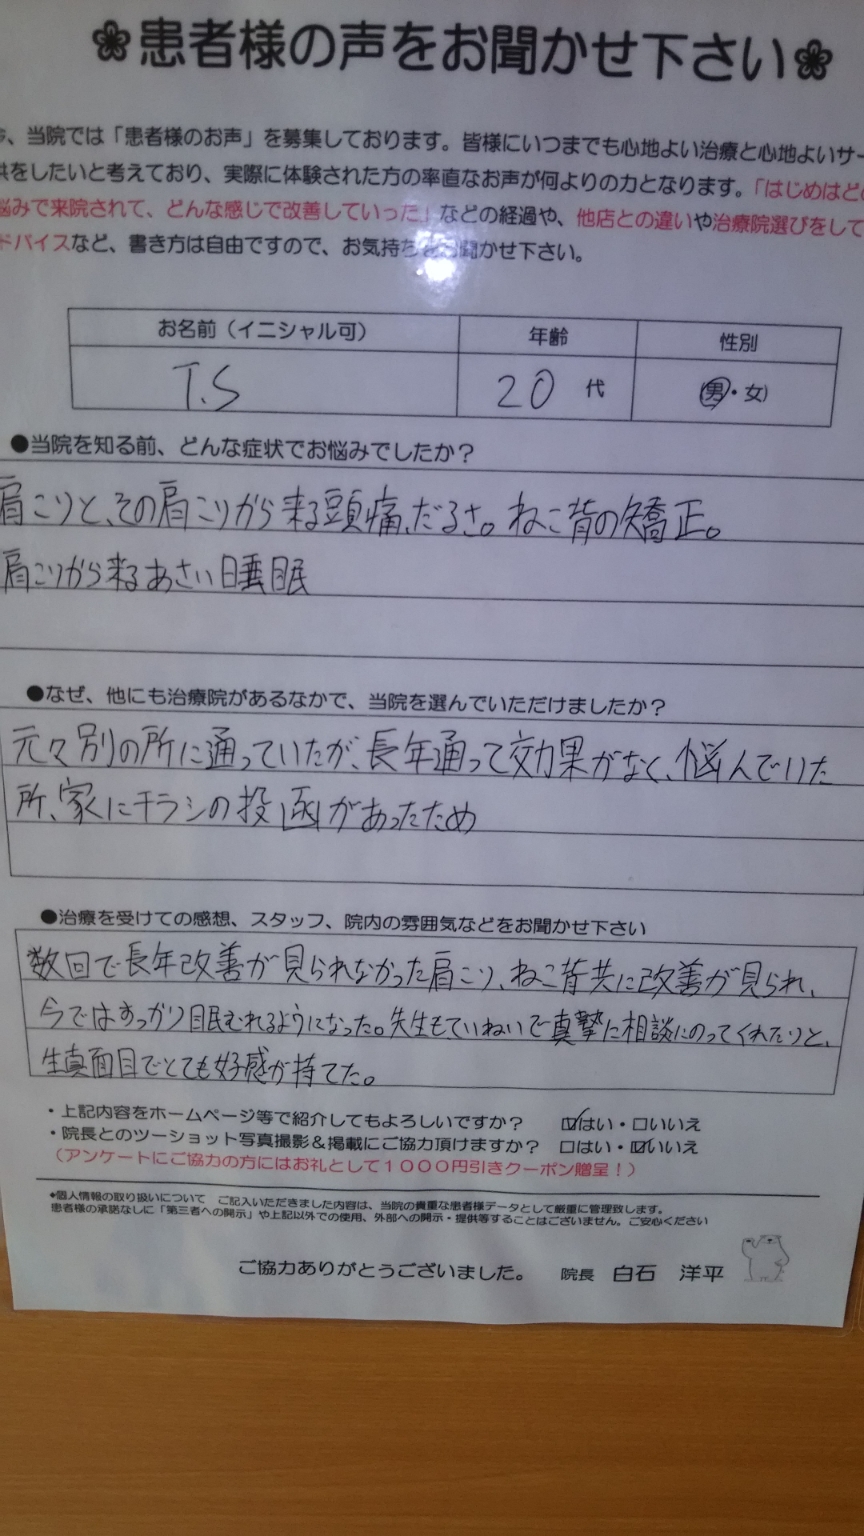 ❀患者様の声をお聞かせ下さい❀
、当院では「患者様のお声」を募集しております。皆様にいつまでも心地よい治療と心地よいサー
供をしたいと考えており、実際に体験された方の率直なお声が何よりの力となります。「はじめはど
悩みで来院されて、どんな感じで改善していった」などの経過や、他店との違いや治療院選びをして
ドバイスなど、書き方は自由ですので、お気持ち聞かせ下さい。
お名前（イニシャル可） 年齢 性別
T.S 20 代 男・女
●当院を知る前、どんな症状でお悩みでしたか？
肩こりと、その肩こりから来る頭痛、だるさ。ねこ背の矯正。
肩こりから来るあさい睡眠
●なぜ、他にも治療院があるなかで、当院を選んでいただけましたか？
元々別の所に通っていたが、長年通って効果がなく、悩んでいた
所、家にチラシの投函があったため
●治療を受けての感想、スタッフ、院内の雰囲気などをお聞かせ下さい
数回で長年改善が見られなかった肩こり、ねこ背共に改善が見られ、
今ではすっかり眠むれるようになった。先生もていねいで真摯に相談にのってくれたりと、
生真面目でとても好感が持てた。
・上記内容をホームページ等で紹介してもよろしいですか？ ☑はい・□いいえ
・院長とのツーショット写真撮影＆掲載にご協力頂けますか？ □はい・☑いいえ
（アンケートにご協力の方にはお礼として１０００円引きクーポン贈呈！）
●個人情報の取り扱いについて ご記入いただきました内容は、当院の貴重な患者様データとして厳重に管理致します。
患者様の承諾なしに「第三者への開示」や上記以外での使用、外部への開示・提供等することはございません。ご安心ください
ご協力ありがとうございました。 院長 白石 洋平